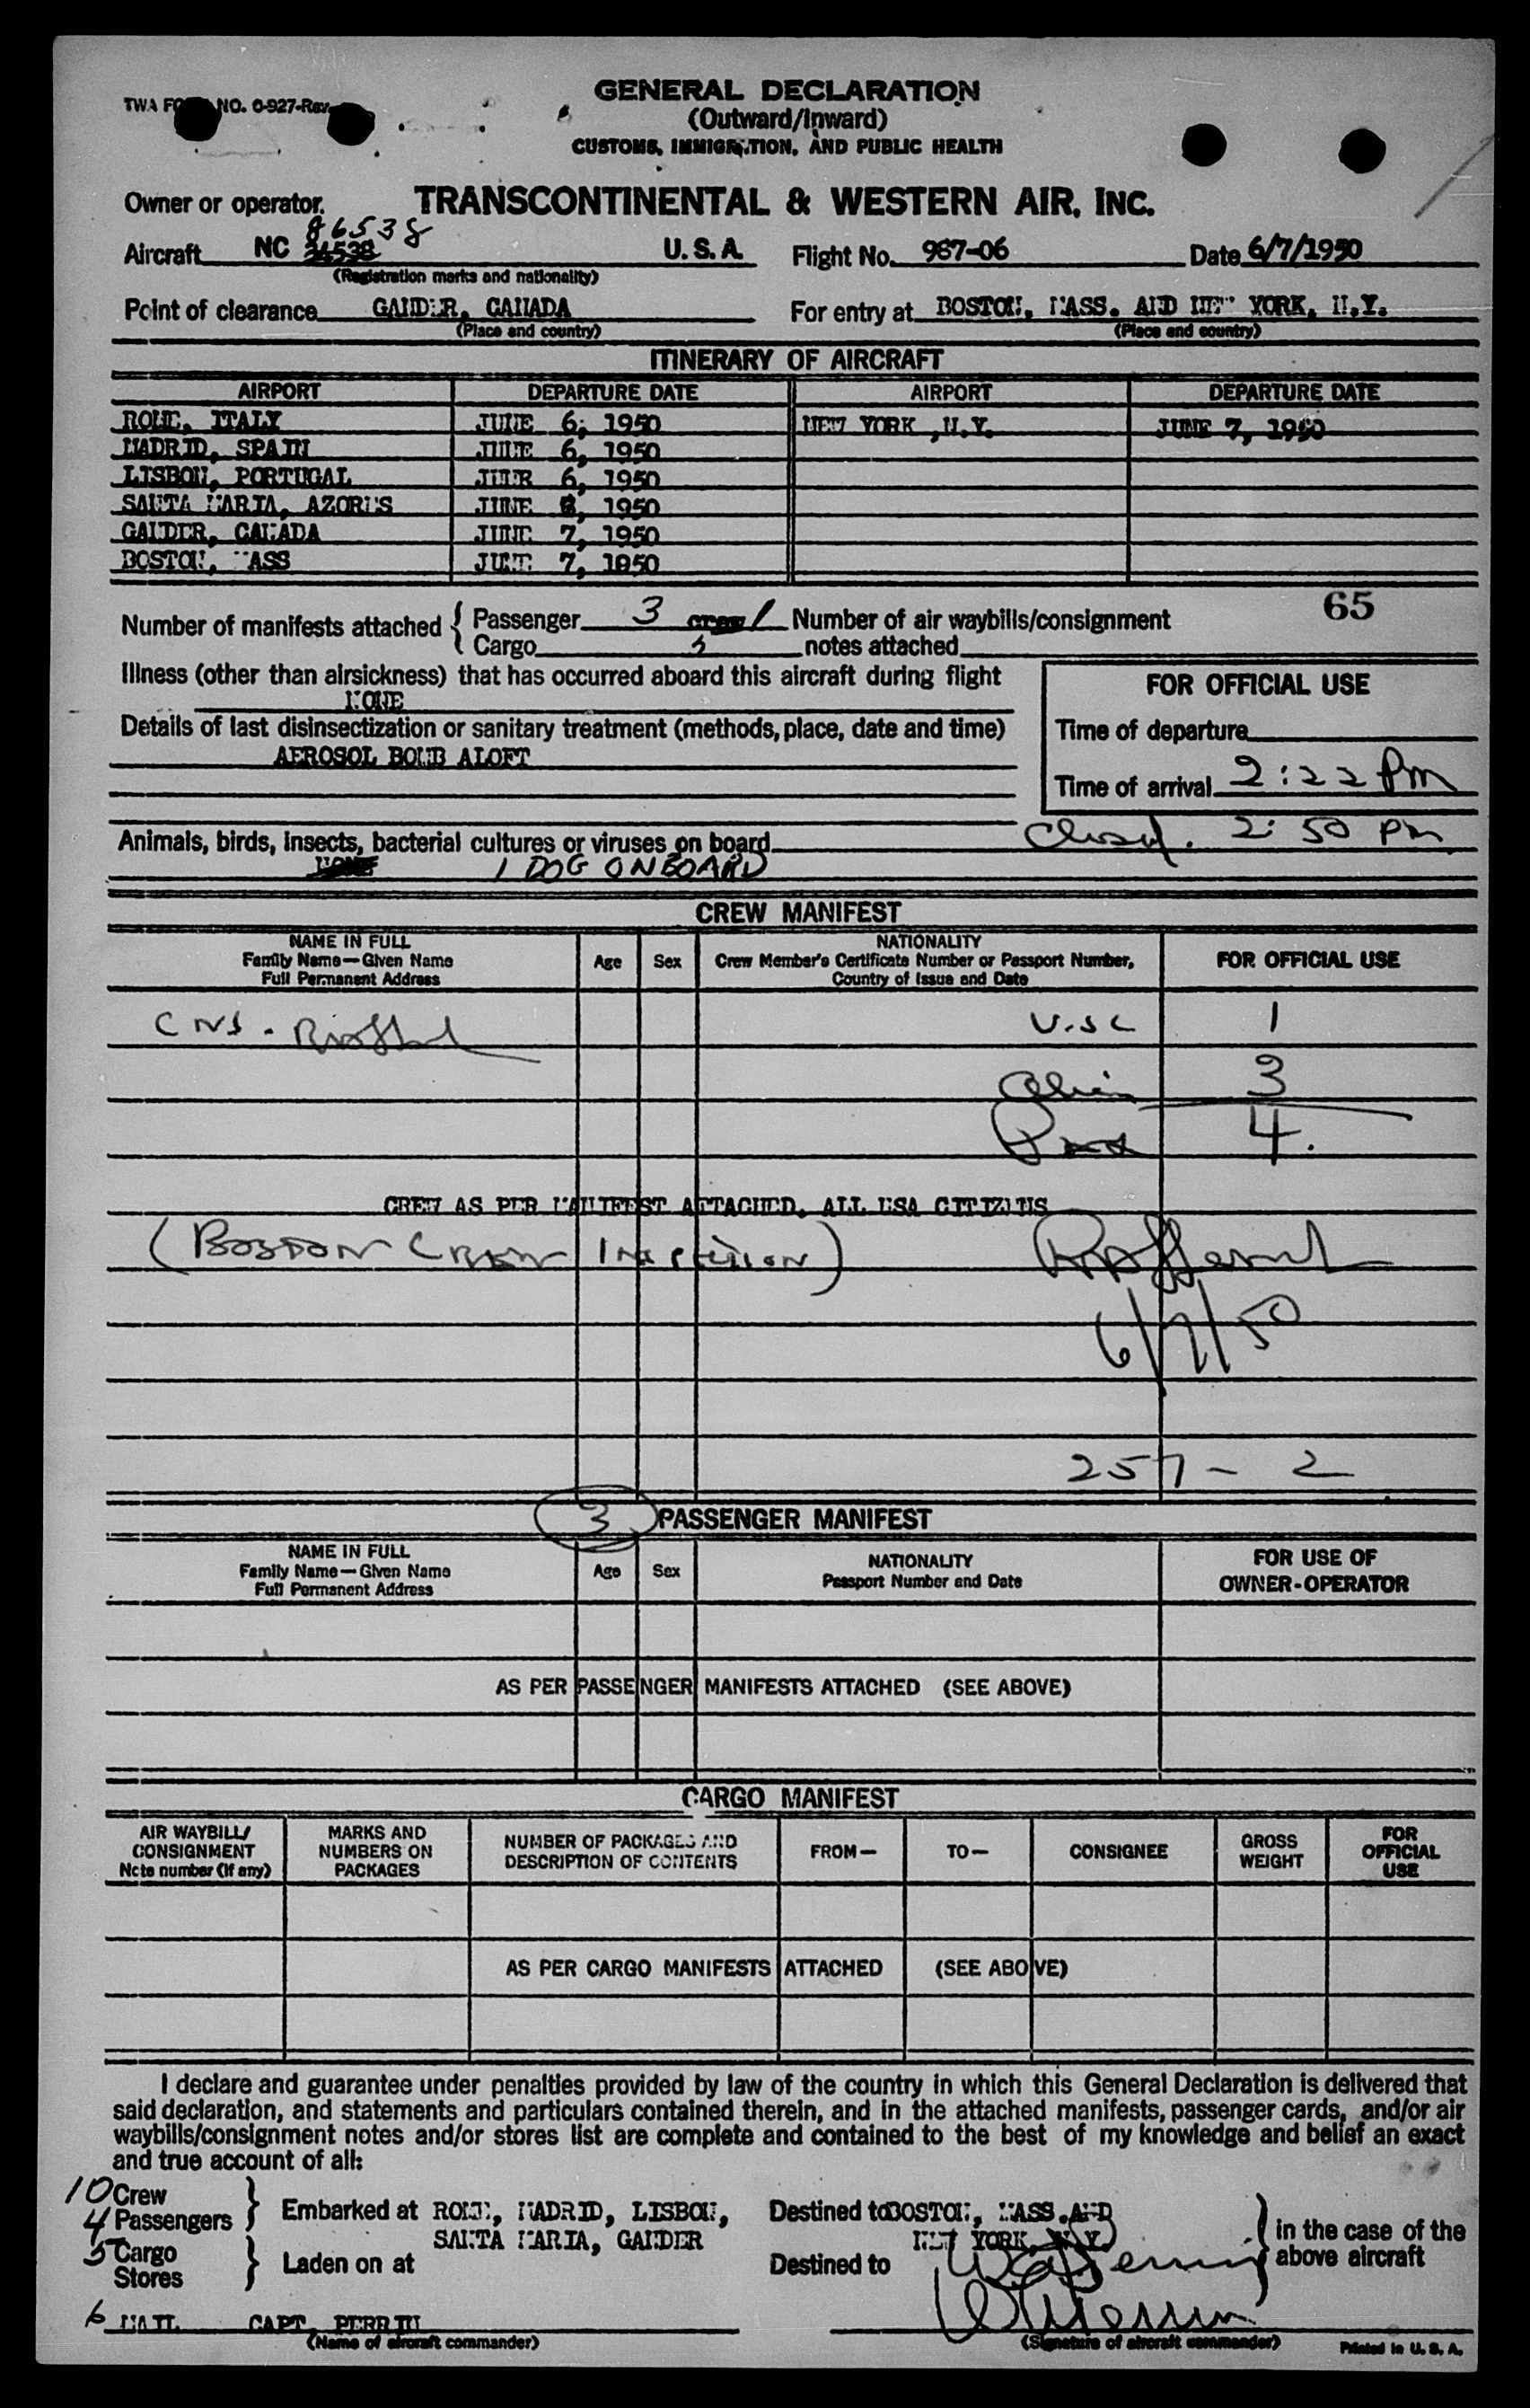 GENERAL DECLARATION
(Outward/Inward)
CUSTOMS, IMMIGRATION, AND PUBLIC HEALTH
TWA FORM NO. O-927-Rev.
Owner or operator. TRANSCONTINENTAL & WESTERN AIR, INC.
86538
Aircraft NC U.S.A. Flight No. 967-06 Date 6/7/1950
(Registration marks and nationality)
Point of clearance GANDER, CANADA For entry at BOSTON, MASS. AND NEW YORK, N.Y.
(Place and country) (Place and country)
ITINERARY OF AIRCRAFT
AIRPORT DEPARTURE DATE AIRPORT DEPARTURE DATE
ROME, ITALY JUNE 6, 1950 NEW YORK ,N.Y. JUNE 7, 1950
MADRID, SPAIN JUNE 6, 1950
LISBON, PORTUGAL JUNE 6, 1950
SANTA MARIA, AZORES JUNE 1950
GANDER, CANADA JUNE 7, 1950
BOSTON, MASS JUNE 7, 1950
65
Number of manifests attached { Passenger 3 crew 1 Number of air waybills/consignment
Cargo notes attached
Illness (other than airsickness) that has occurred aboard this aircraft during flight
NONE
FOR OFFICIAL USE
Details of last disinsectization or sanitary treatment (methods, place, date and time)
AEROSOL BOMB ALOFT
Time of departure
Time of arrival 2:22 Pm
Closed. 2:50 pm
Animals, birds, insects, bacterial cultures or viruses on board
NONE 1 DOG ONBOARD
CREW MANIFEST
NAME IN FULL
Family Name—Given Name
Full Permanent Address
Age Sex
NATIONALITY
Crew Member's Certificate Number or Passport Number,
Country of Issue and Date
FOR OFFICIAL USE
U.S.C 1
Alien 3
Pass 4.
CREW AS PER MANIFEST ATTACHED. ALL USA CITIZENS
(BOSTON CREW INSPECTION)
6/7/50
257 - 2
3 PASSENGER MANIFEST
NAME IN FULL
Family Name—Given Name
Full Permanent Address
Age Sex
NATIONALITY
Passport Number and Date
FOR USE OF
OWNER-OPERATOR
AS PER PASSENGER MANIFESTS ATTACHED (SEE ABOVE)
CARGO MANIFEST
AIR WAYBILL/
CONSIGNMENT
Note number (if any)
MARKS AND
NUMBERS ON
PACKAGES
NUMBER OF PACKAGES AND
DESCRIPTION OF CONTENTS
FROM— TO— CONSIGNEE
GROSS
WEIGHT
FOR
OFFICIAL
USE
AS PER CARGO MANIFESTS ATTACHED (SEE ABOVE)
I declare and guarantee under penalties provided by law of the country in which this General Declaration is delivered that
said declaration, and statements and particulars contained therein, and in the attached manifests, passenger cards, and/or air
waybills/consignment notes and/or stores list are complete and contained to the best of my knowledge and belief an exact
and true account of all:
10 Crew
4 Passengers
5 Cargo
Stores
Embarked at ROME, MADRID, LISBON,
SANTA MARIA, GANDER
Laden on at
Destined to BOSTON, MASS. AND
NEW YORK, N.Y.
Destined to
in the case of the
above aircraft
6 MAIL CAPT. PERRIN
(Name of aircraft commander)
(Signature of aircraft commander)
Printed in U. S. A.